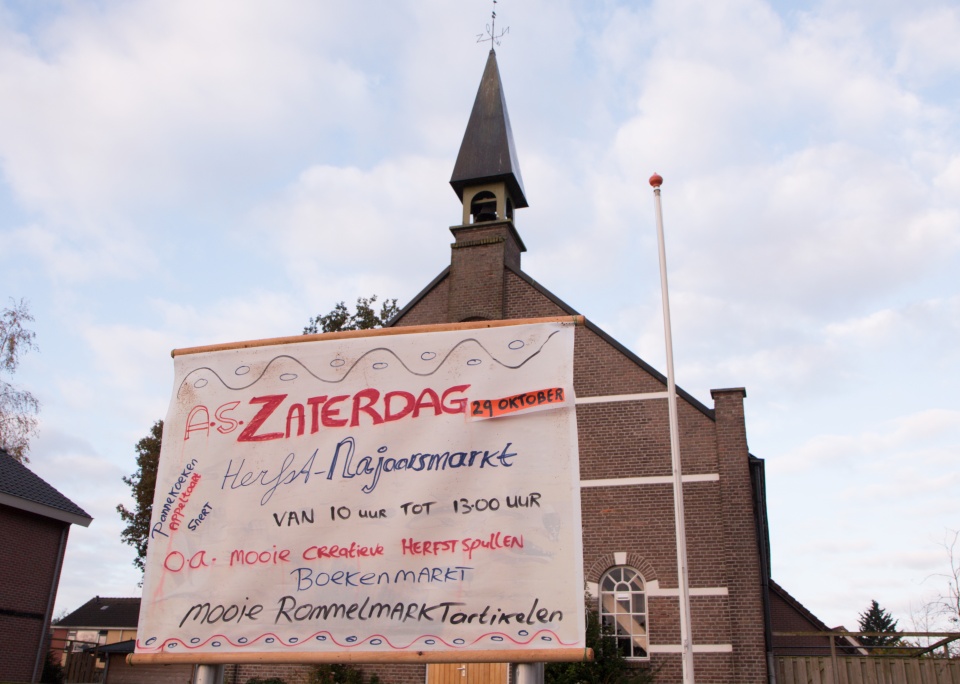 A.S. ZATERDAG 29 OKTOBER
HerfST-Najaarsmarkt
Pannekoeken
Appeltaart
Snert
VAN 10 UUR TOT 13.00 UUR
o.a. mooie creatieve HERFSTspullen
BOEKENMARKT
mooie RommelmarkTartikelen